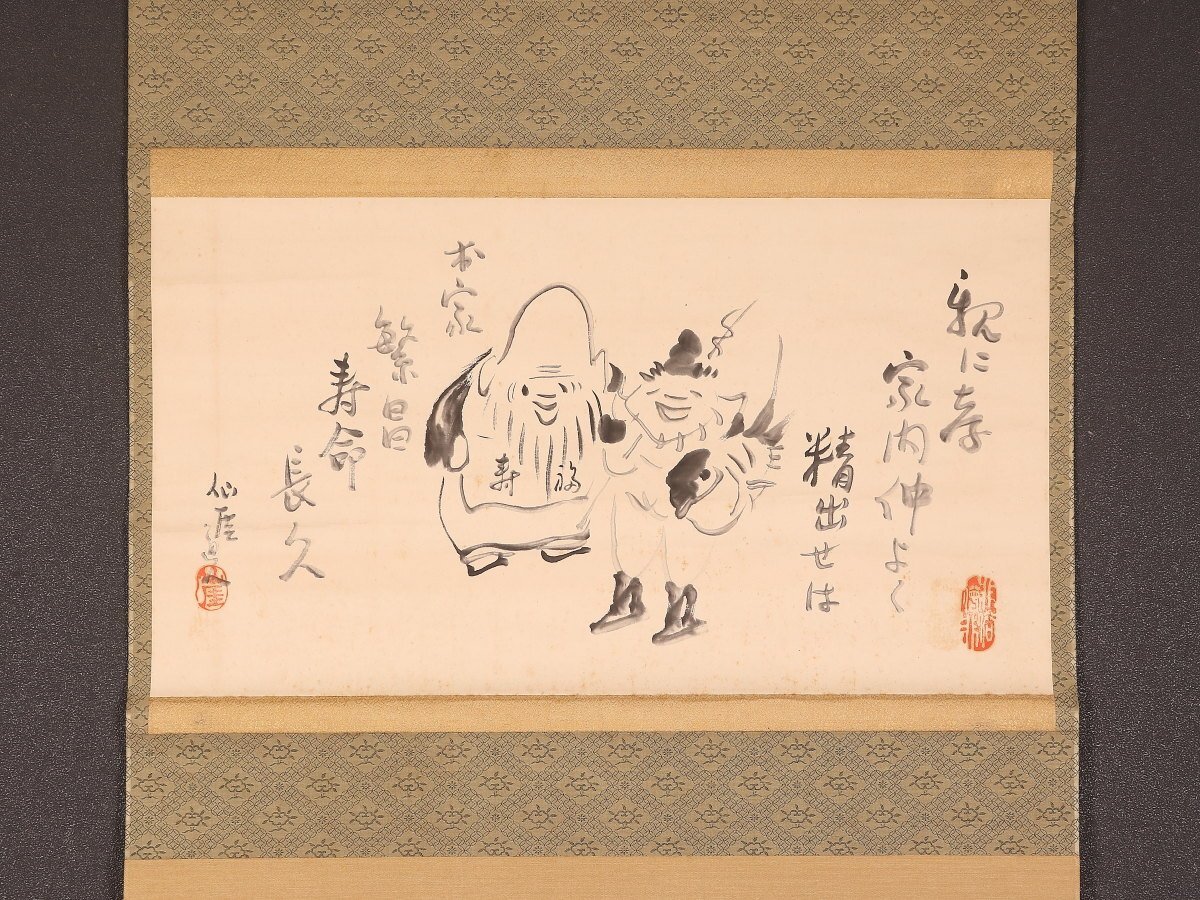 親に孝
家内仲よく
精出せは
福
寿
本家
繁昌
寿命
長久
仙崖